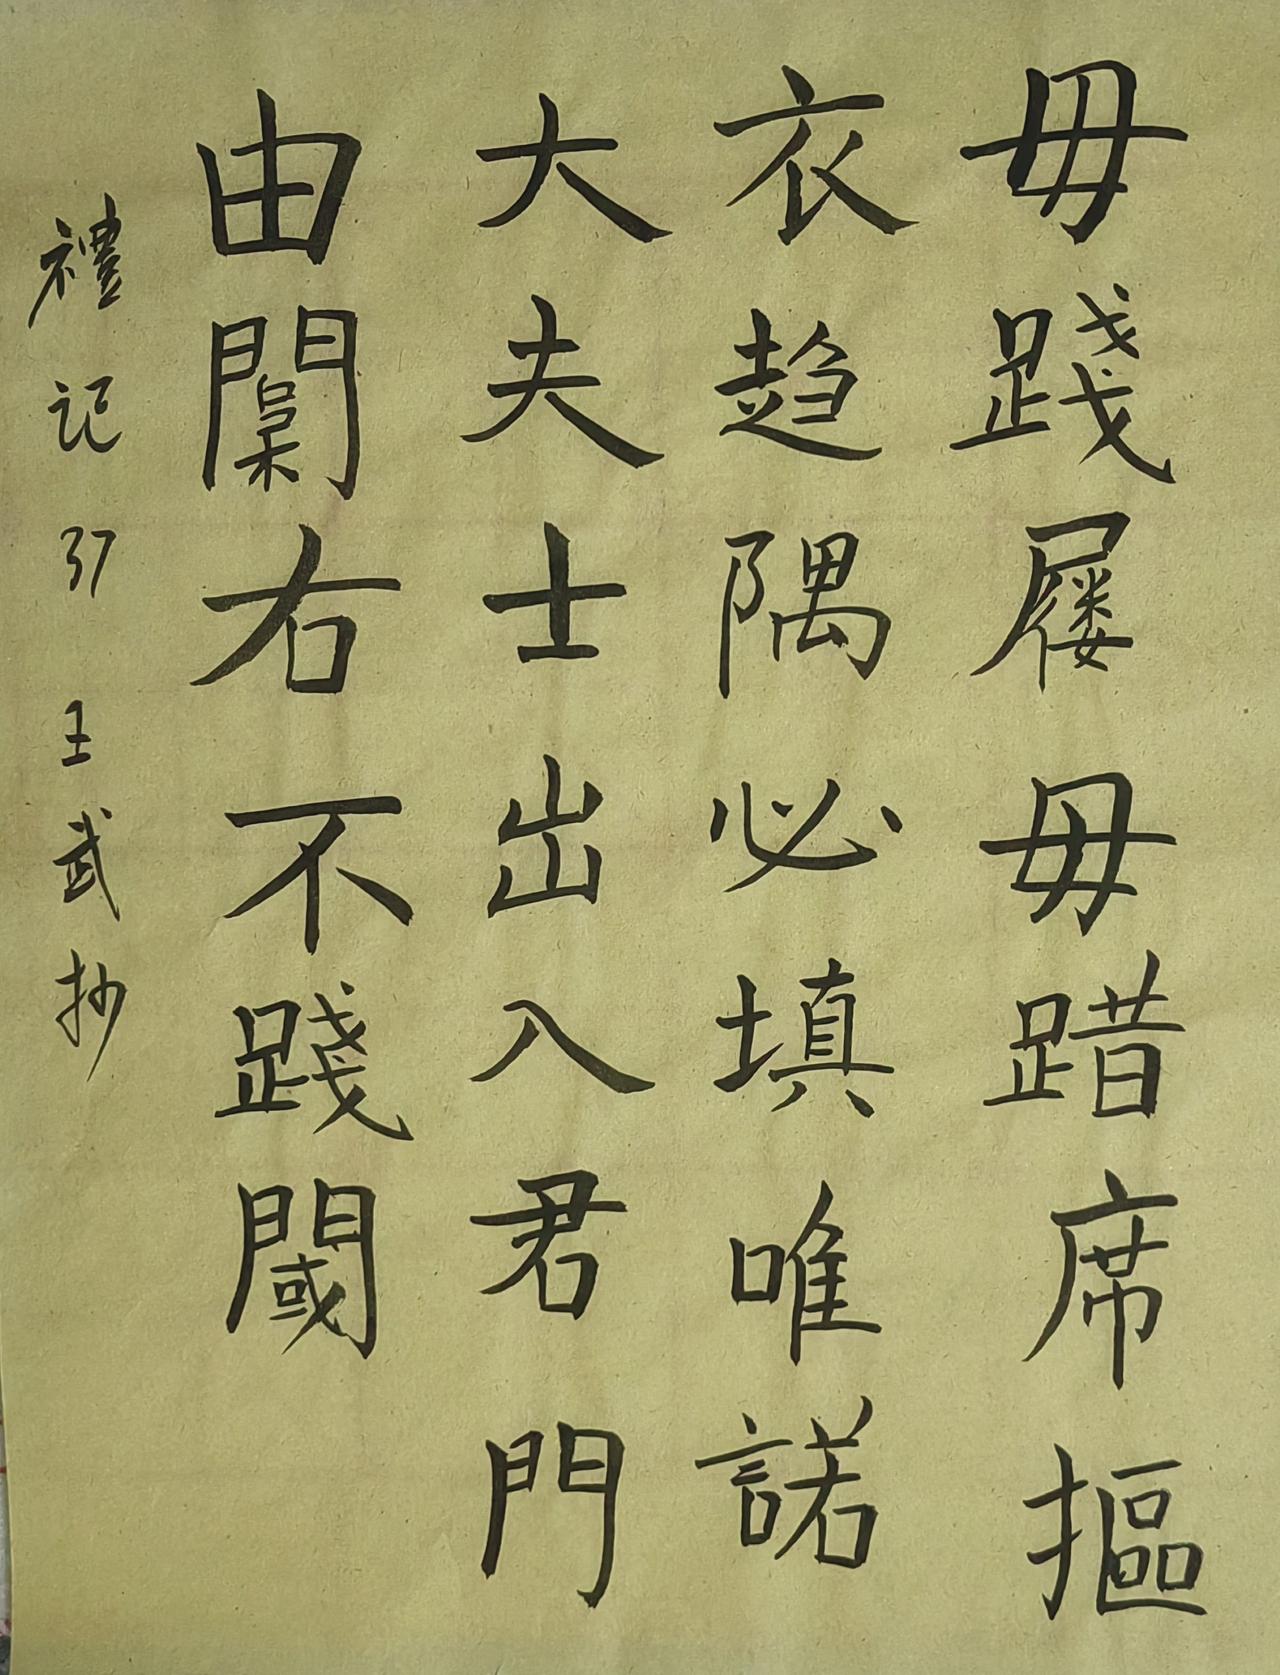 毋踐屨毋踖席摳
衣趋隅必填唯諾
大夫士出入君門
由闑右不踐閾
禮记37 王武抄